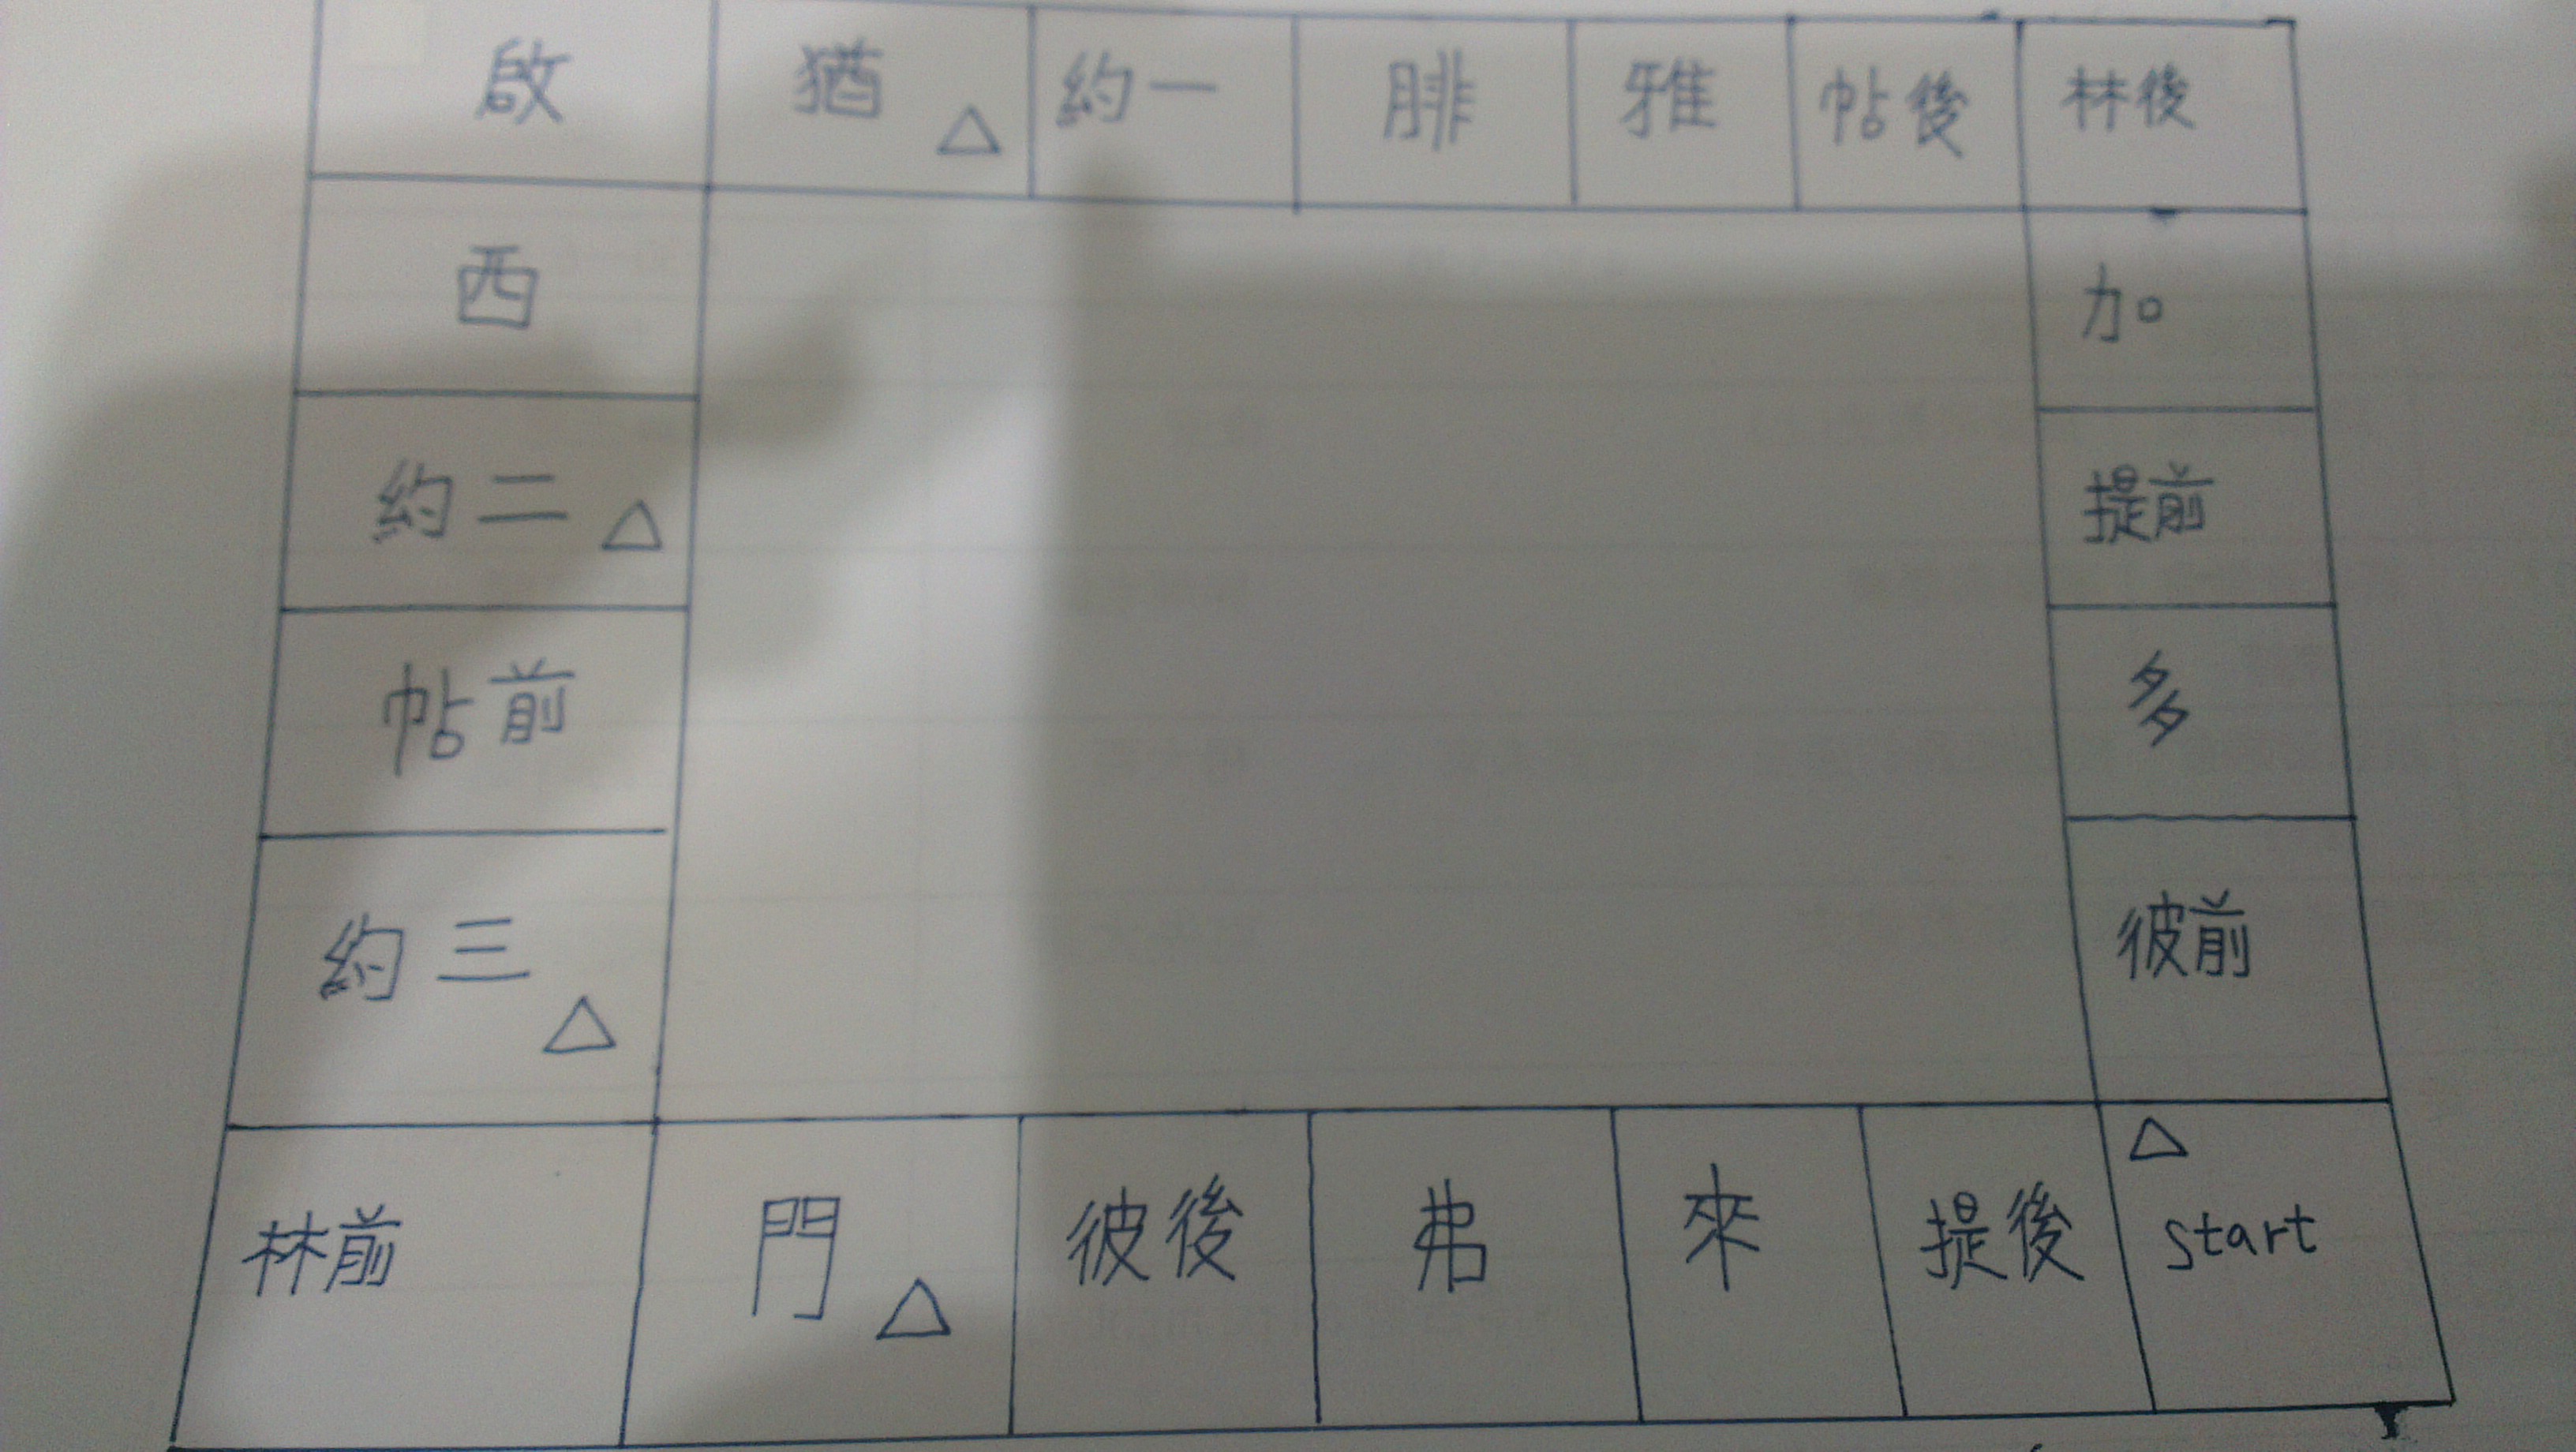 啟 猶 △ 約一 腓 雅 帖後 林後
西 加
約二 △ 提前
帖前 多
約三 △ 彼前
林前 門 △ 彼後 弗 來 提後 △ start